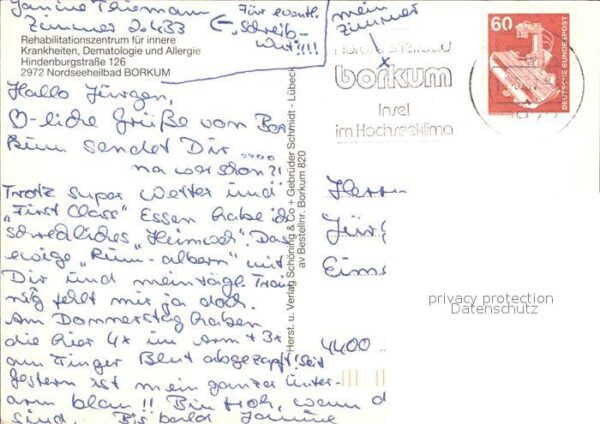 Janine Thiemann
Zimmer 2.433
Für eventl.
Schreib-
wut!!!!
mein
Zimmer
Rehabilitationszentrum für innere
Krankheiten, Dematologie und Allergie
Hindenburgstraße 126
2972 Nordseeheilbad BORKUM
borkum
Insel
im Hochseeklima
60
DEUTSCHE BUNDESPOST
Hallo Jürgen,
-liche Grüße vom Bor
Rum sendet Dir .....
na wer schon?!
Trotz super Wetter und
"First Class" Essen habe ich
schreckliches "Heimweh". Das
ewige "Rum-albern" mit
Dir und mein tägl. Trai
nig fehlt mir ja doch.
Am Donnerstag haben
die hier 4x im Arm + 3x
am Finger Blut abgezapft! Seit
gestern ist mein ganzer Unter-
arm blau!! Bin froh, wenn d
sind. Bis bald Janine
Herst. u. Verlag Schöning & Co + Gebrüder Schmidt - Lübeck
av Bestellnr. Borkum 820
Herr
Jürg
Eims
4400
privacy protection
Datenschutz